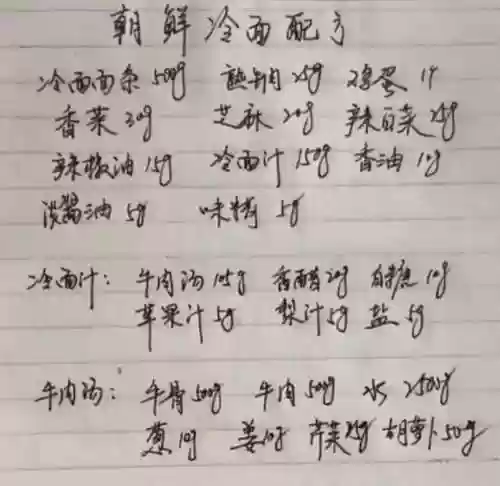 朝鲜冷面配方
冷面面条 500g 熟牛肉 25g 鸡蛋 1个
香菜 20g 芝麻 20g 辣白菜 25g
辣椒油 15g 冷面汁 150g 香油 10g
淡酱油 5g 味精 5g
冷面汁: 牛肉汤 105g 香醋 20g 白糖 10g
苹果汁 5g 梨汁 5g 盐 5g
牛肉汤: 牛骨 500g 牛肉 500g 水 2500g
葱 10g 姜 10g 芹菜 25g 胡萝卜 50g